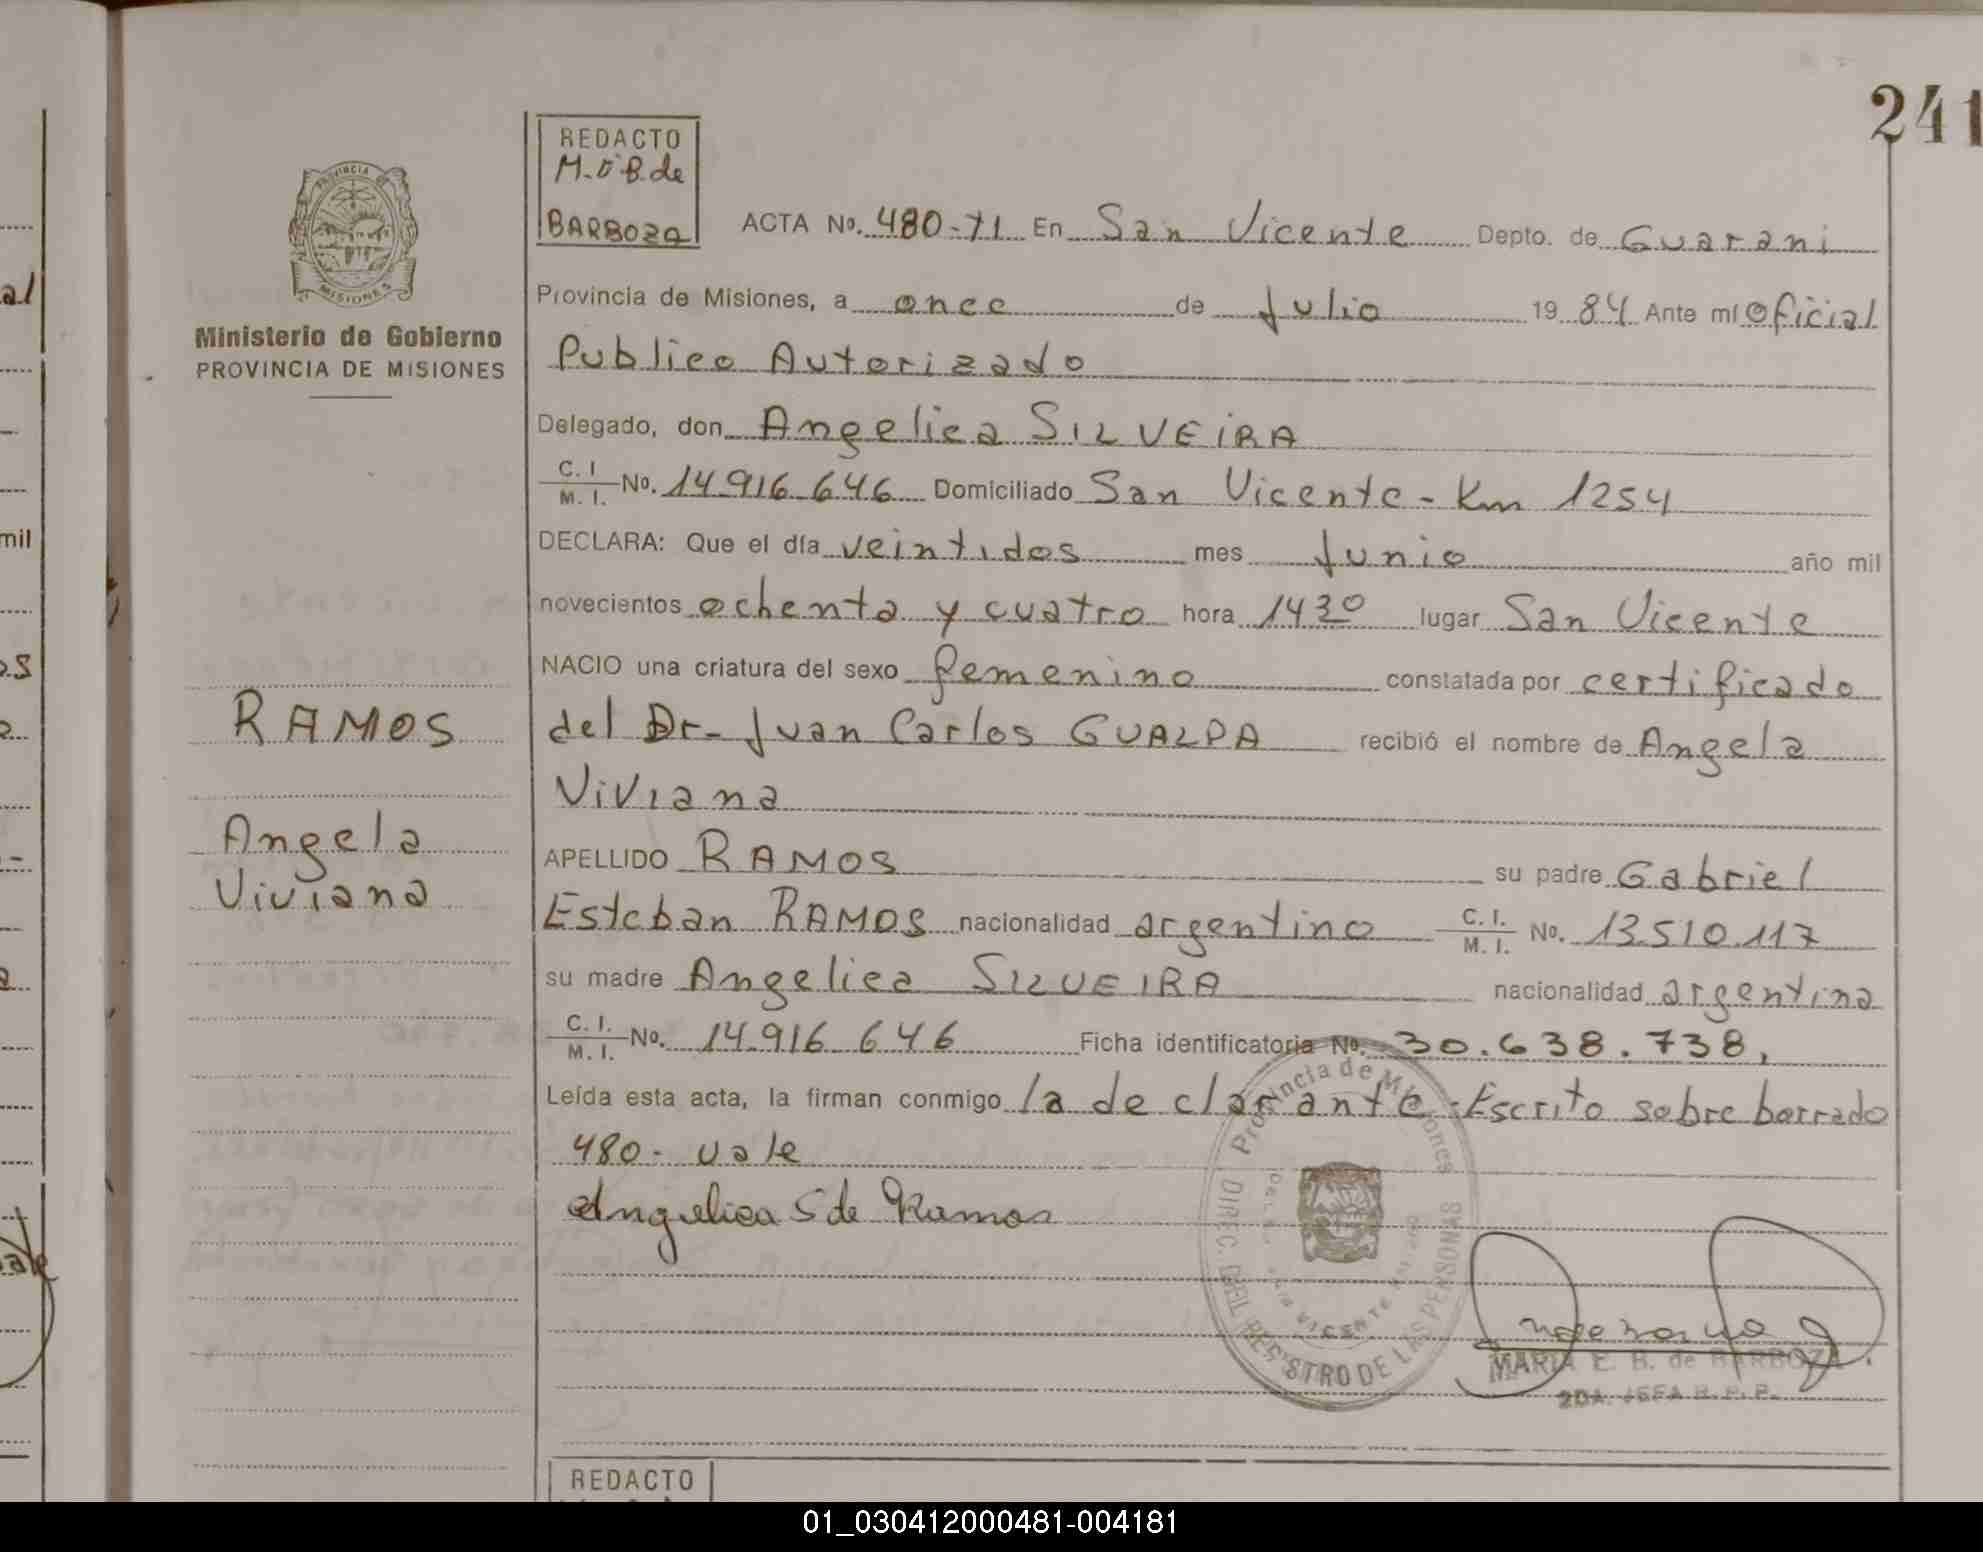 241
REDACTO
M. B. de
BARBOZA
PROVINCIA DE
MISIONES
Ministerio de Gobierno
PROVINCIA DE MISIONES
ACTA No. 480-71 En San Vicente Depto. de Guarani
Provincia de Misiones, a once de Julio 1984 Ante mí Oficial
Publico Autorizado
Delegado, don Angelica SILVEIRA
C. I. M. I. No. 14.916.646 Domiciliado San Vicente - Km 1254
DECLARA: Que el día veintidos mes Junio año mil
novecientos ochenta y cuatro hora 1430 lugar San Vicente
NACIO una criatura del sexo femenino constatada por certificado
del Dr- Juan Carlos GUALPA recibió el nombre de Angela
Viviana
APELLIDO RAMOS su padre Gabriel
Esteban RAMOS nacionalidad argentino C. I. M. I. No. 13.510.117
su madre Angelica SILVEIRA nacionalidad argentina
C. I. M. I. No. 14.916.646 Ficha identificatoria No. 30.638.738,
Leída esta acta, la firman conmigo la declarante. Escrito sobre borrado
480- vale
Angelica S de Ramos
RAMOS
Angela
Viviana
Provincia de Misiones
DIREC. DEL REGISTRO DE LAS PERSONAS
VICENTE
MARIA E. B. de BARBOZA
2DA. JEFA R. P. P.
REDACTO
al
mil
01_030412000481-004181